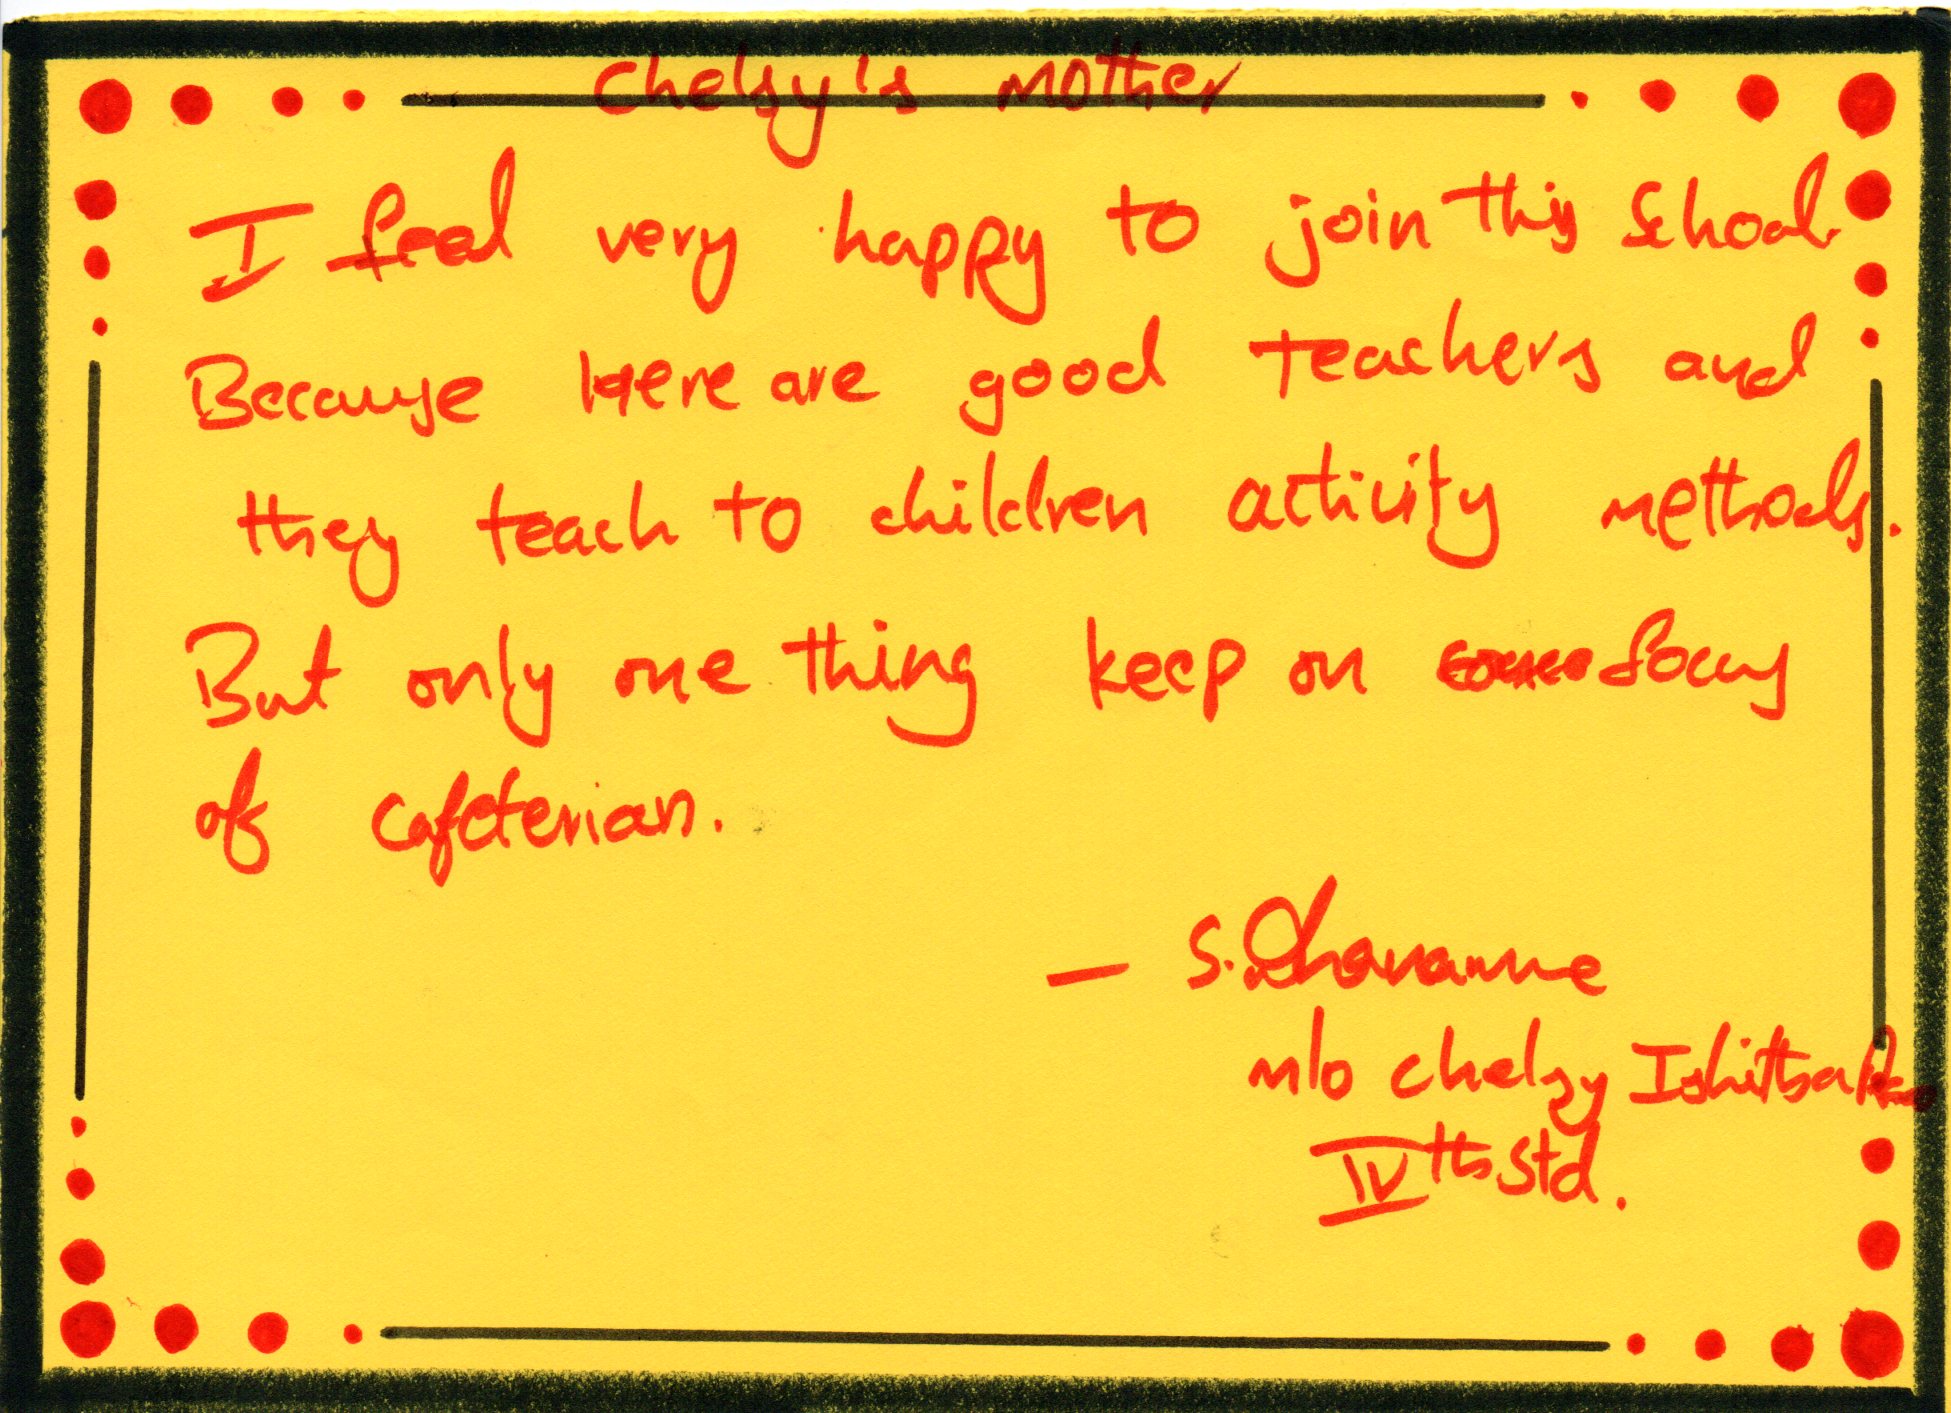 Chelsy's Mother
I feel very happy to join this School.
Because Here are good teachers and
they teach to children activity methods.
But only one thing keep on focus
of cafeterian.
— S.
m/o Chelsy Ishitha
IVth Std.